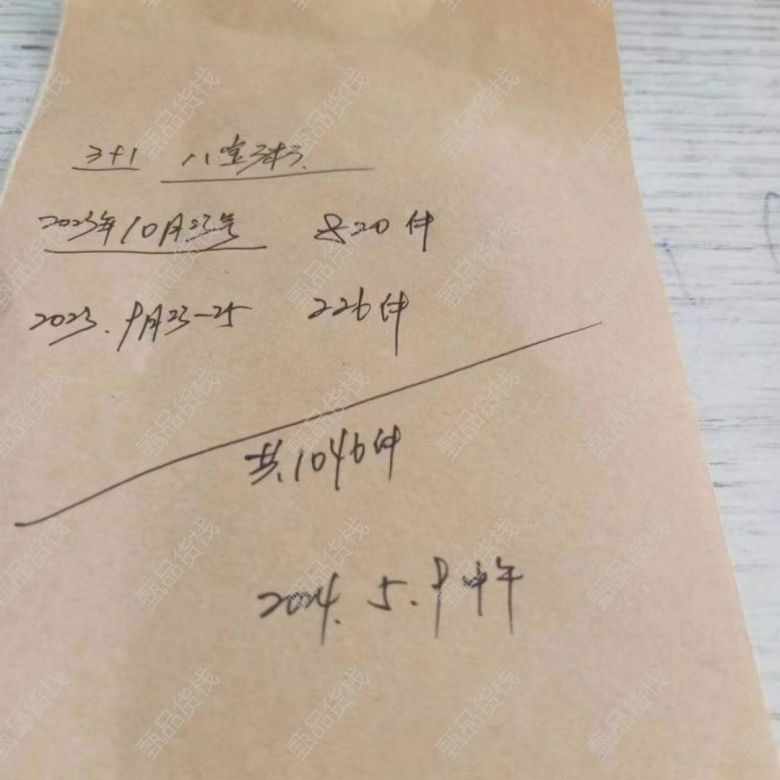 3+1 八宝粥
2023年10月23号 820件
2023.9月23-25 226件
共.1046件
2024.5.9中午
甄品货栈